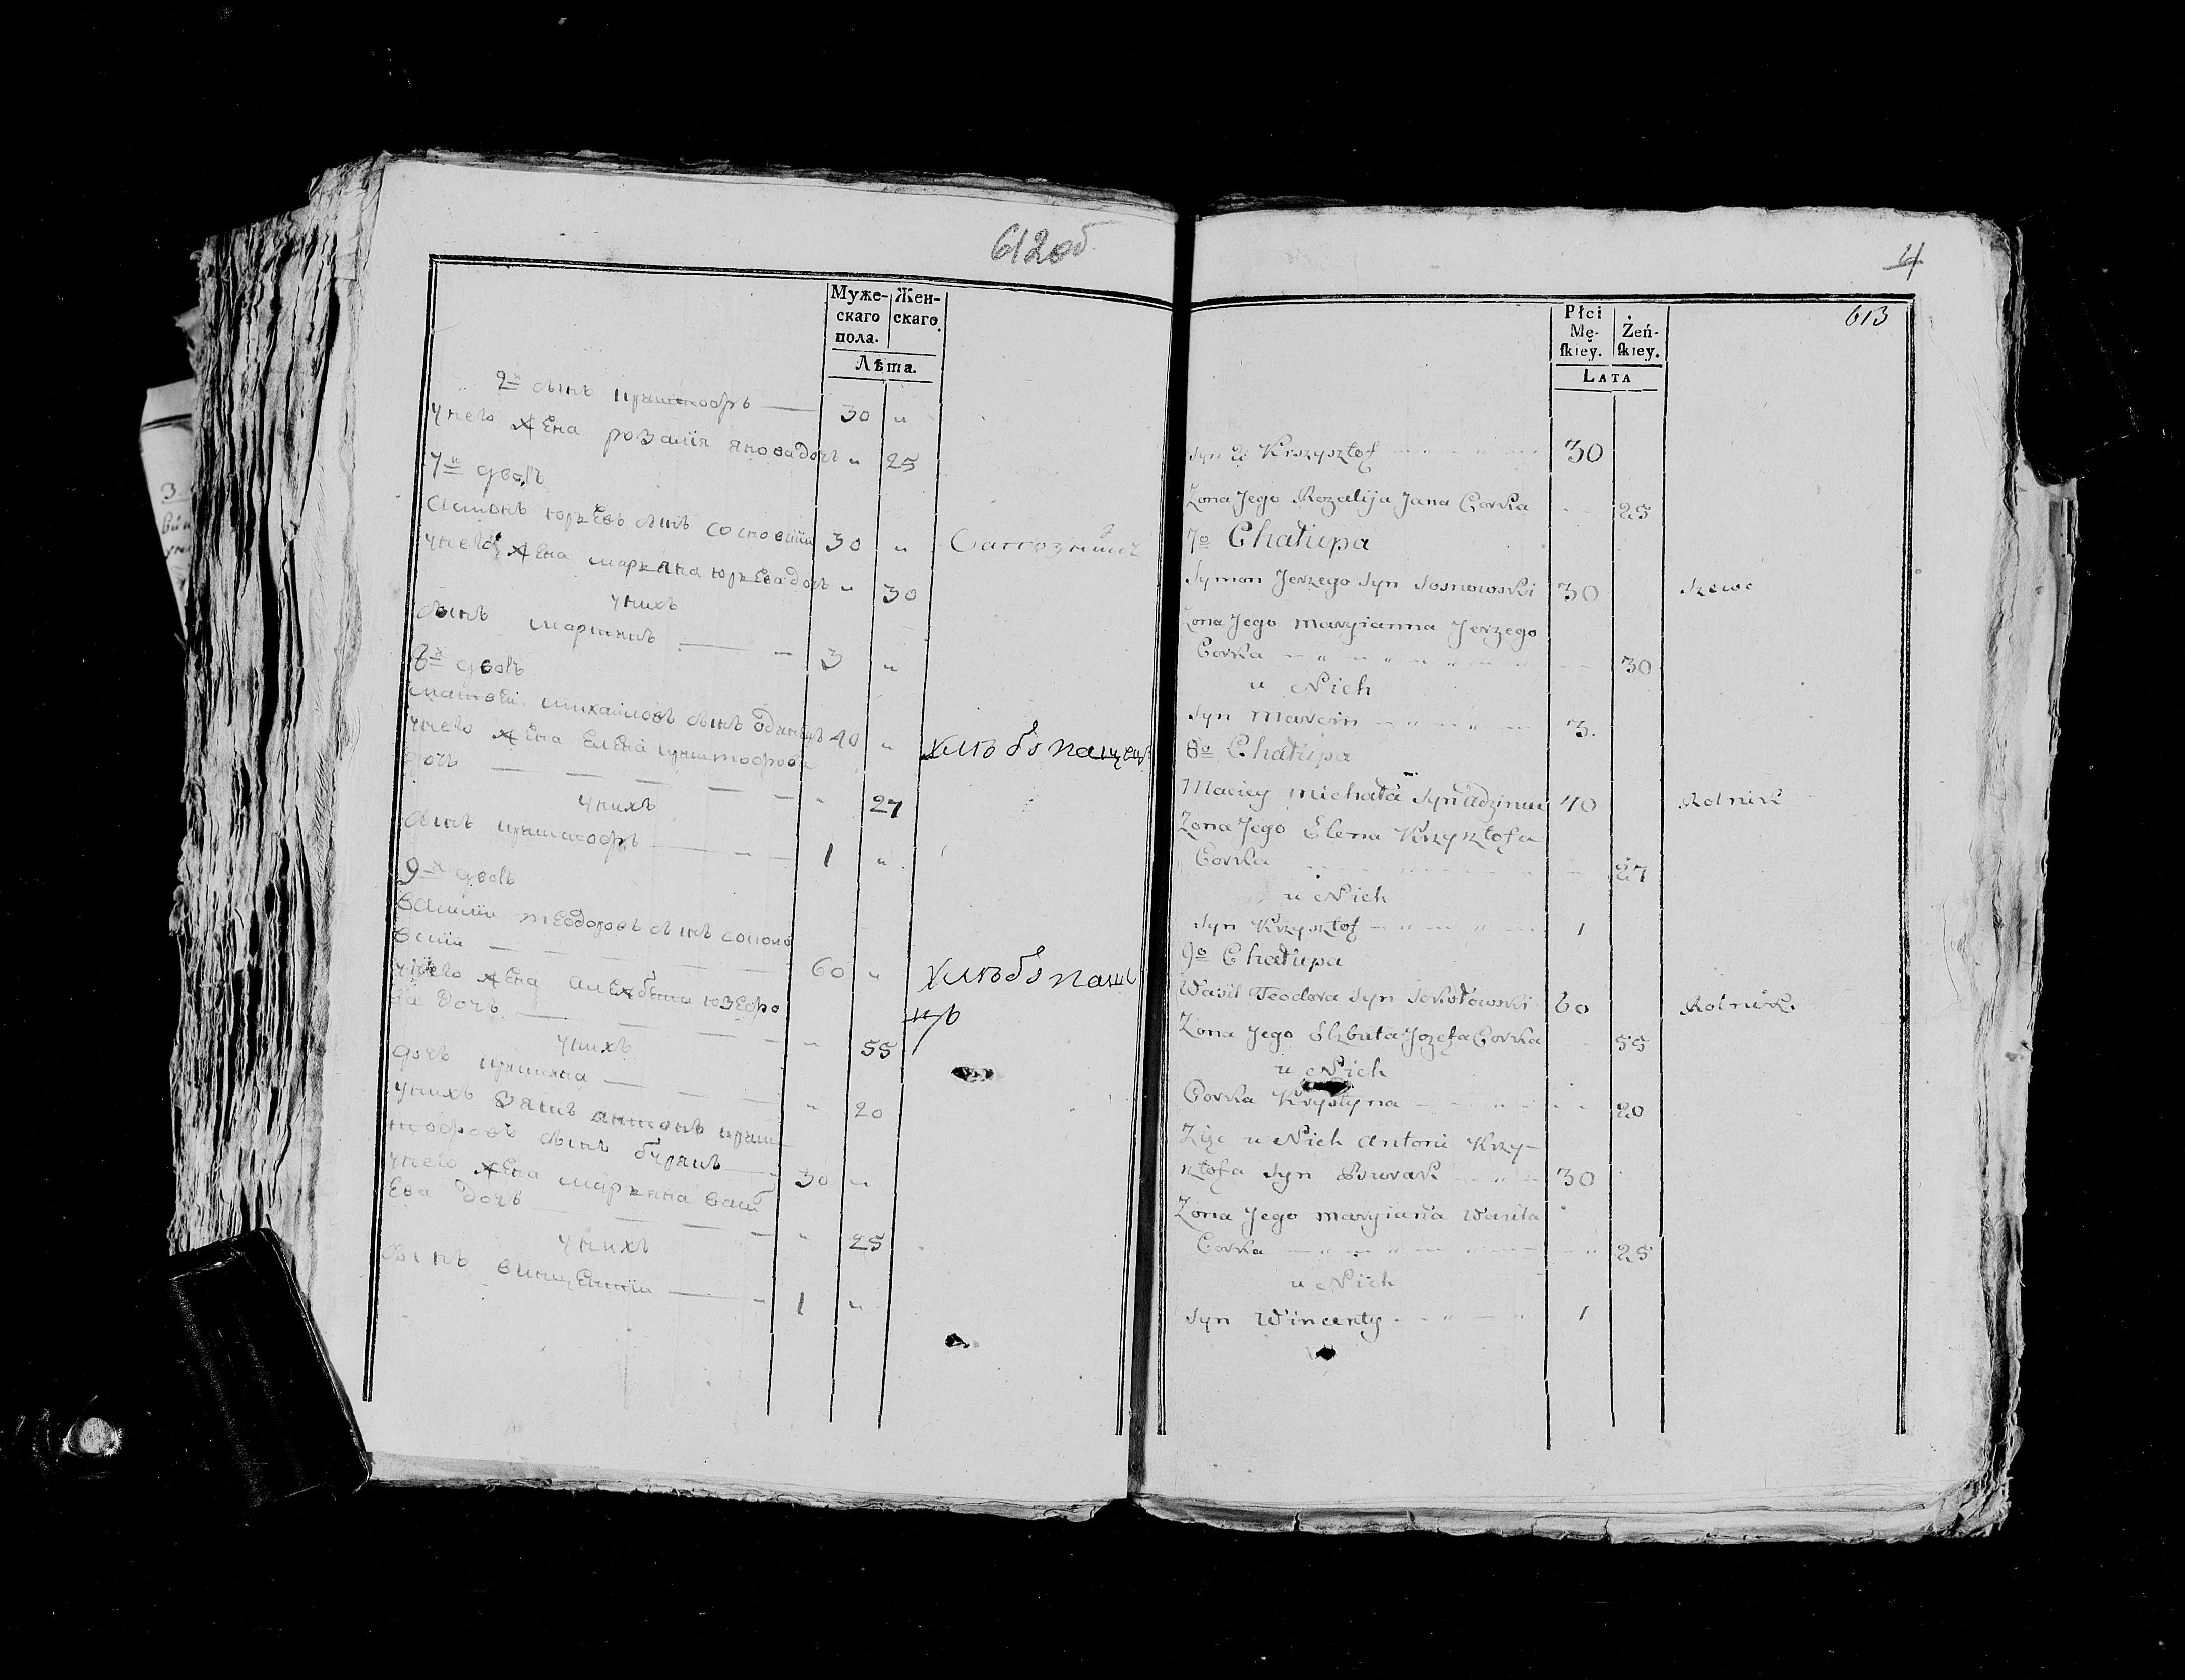 612 об
Муже- Жен-
скаго скаго.
пола.
Лѣта.
2й сынъ криштофъ 30 „
у него жена розалія янова дочь „ 25
7й дворъ
сымонъ юрьевъ сынъ сосновскій 30 „
у него жена марьяна юрьева дочь „ 30
у нихъ
сынъ мартинъ 3 „
8й дворъ
матвей михайловъ сынъ 40 „ хлѣбопашецъ
у него жена елена криштофова
дочь „ 27
у нихъ
сынъ криштофъ 1 „
9й дворъ
василій теодоровъ сынъ соколо
вскій 60 „ хлѣбопаше
цъ
у него жена алежбета юзефо
ва дочь „ 55
у нихъ
дочь „ 20
у нихъ зять антонъ криш
тофовъ сынъ буракъ 30 „
у него жена марьяна васил
ева дочь „ 25
у нихъ
сынъ винцентій 1 „
4
613
Płci
Mę- Żeń-
ſkiey. ſkiey.
LATA
Syn 2i Krzysztof 30
Zona Jego Rozalija Jana Corka 25
7o Chałupa
Symon Jerzego Syn Sosnowski 30 Szewc
Zona Jego Maryianna Jerzego
Corka 30
u Nich
Syn Marcin 3.
8o Chałupa
Maciey Michała Syn 40 Rolnik
Zona Jego Elena Krzysztofa
Corka 27
u Nich
Syn Krzysztof 1
9o Chałupa
Wasil Teodora Syn Sokołowski 60 Rolnik.
Zona Jego Elzbieta Jozefa Corka 55
u Nich
Corka Krystyna 20
Zięc u Nich Antoni Krzy-
sztofa Syn Burak 30
Zona Jego Maryiana Wasila
Corka 25
u Nich
Syn Wincenty 1